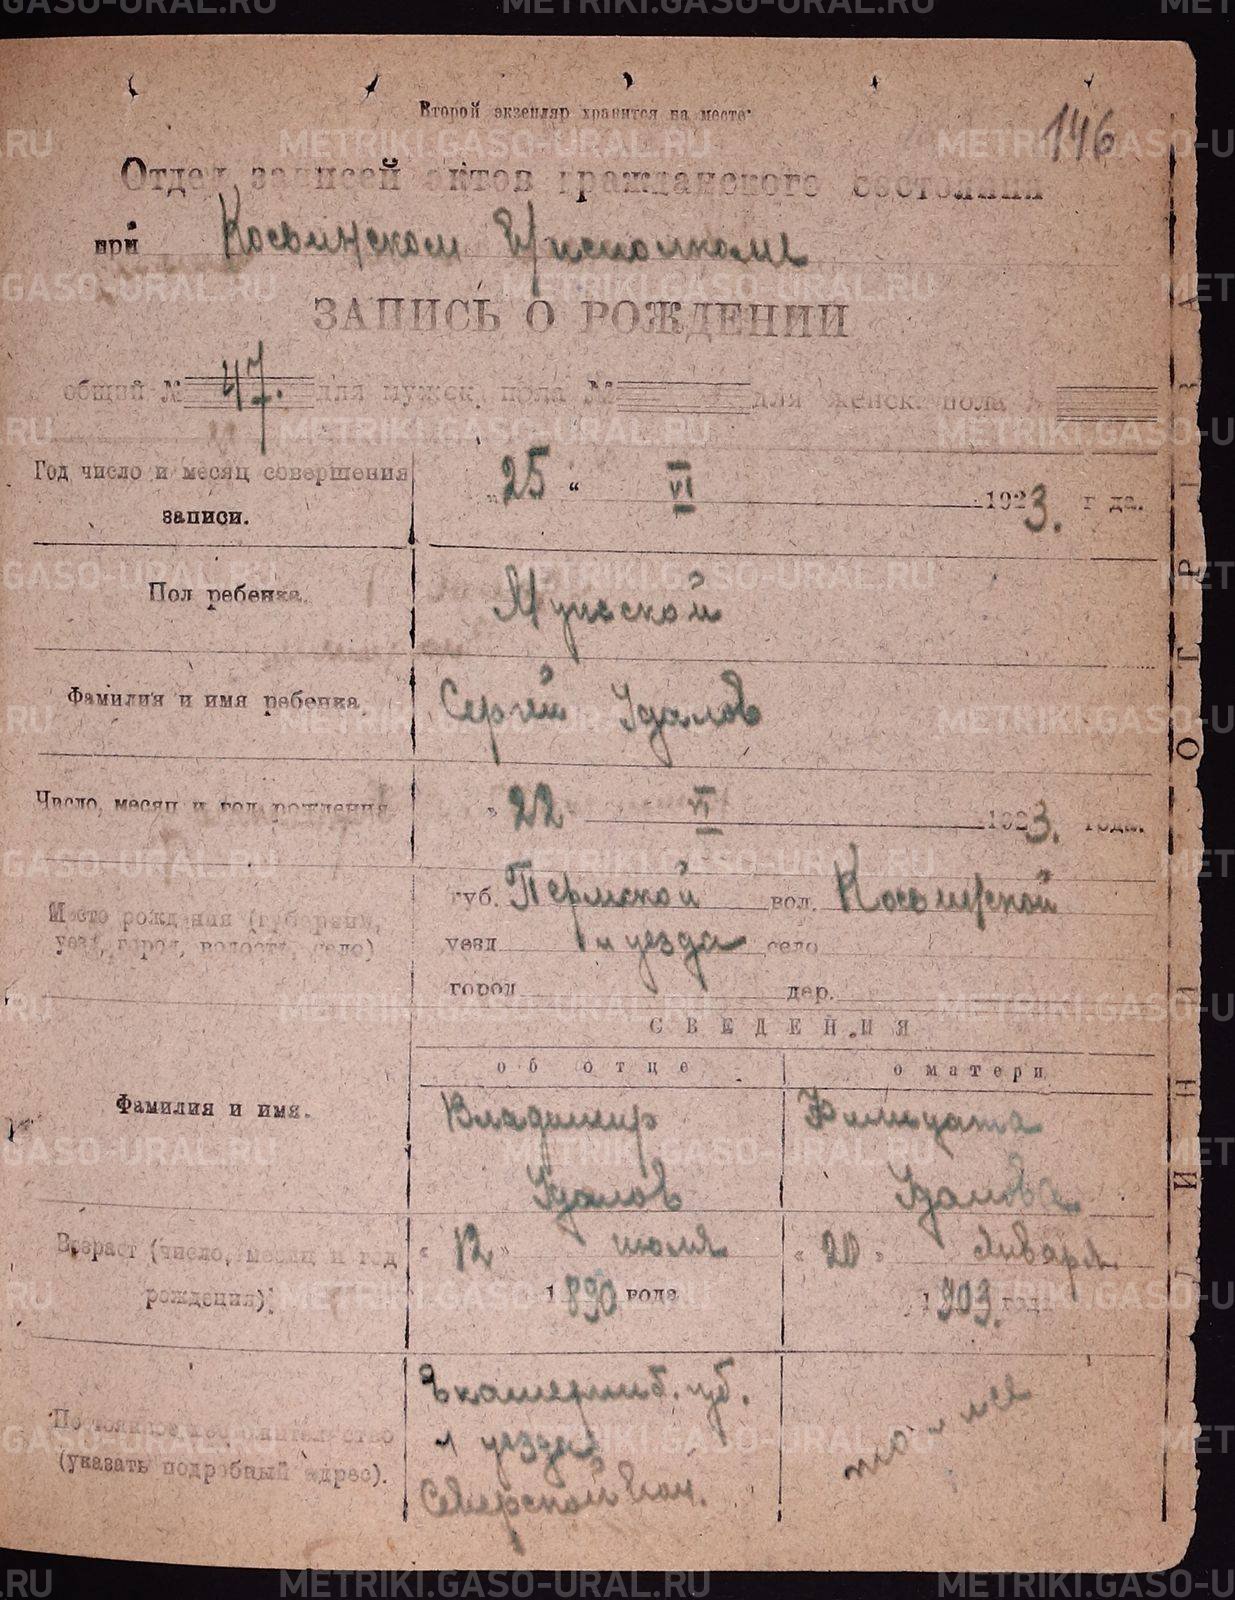 Второй экземпляр хранится на месте.
146
Отдел записей актов гражданского состояния
при
ЗАПИСЬ О РОЖДЕНИИ
общий № 47. для мужск. пола № для женск. пола №
Год число и месяц совершения записи. „25“ VI 1923. года.
Пол ребенка. Мужской
Фамилия и имя ребенка. Сергей Удалов
Число, месяц и год рождения „22 VI 1923. года.
Место рождения (губерния, уезд, город, волость, село)
губ. Пермской вол.
уезд " уезда село
город дер.
СВЕДЕНИЯ
об отце о матери
Фамилия и имя. Владимир Удалов Фелицата Удалова
Возраст (число, месяц и год рождения) „12" июля 1890 года „20" Января 1903. года
Постоянное местожительство (указать подробный адрес).
Екатеринб. губ.
" уезда
Северской вол.
то-же
ЛИНИЯ ОТРЕЗА
METRIKI.GASO-URAL.RU